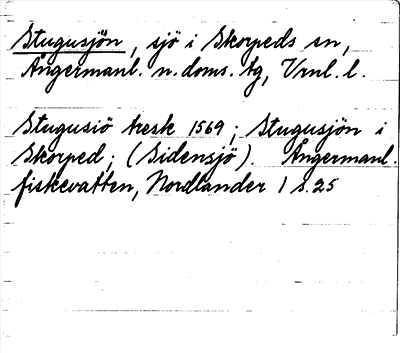 Stugusjön, sjö i Skorpeds sn,
Ångermanl. n. doms. tg, Vrnl. l.
Stugusiö tresk 1569; Stugusjön i
Skorped; (Sidensjö). Ångermanl.
fiskevatten, Nordlander 1 s. 25